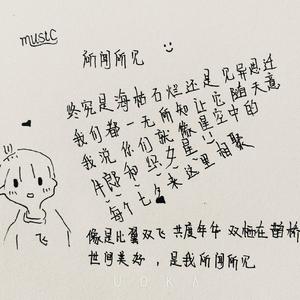 music
所闻所见
终究是海枯石烂还是见异思迁
我们都一无所知让它随天意
我说你们就像星空中的
牛郎和织女星
每个七夕来这里相聚
飞
像是比翼双飞 共度年年 双栖在鹊桥
世间美好，是我所闻所见
UOKA